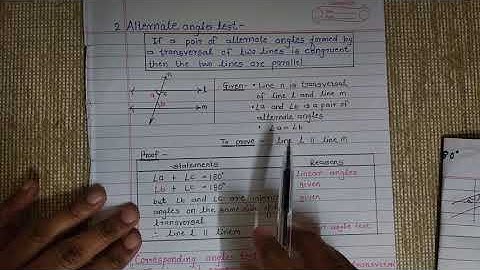 2 Alternate angles test -
If a pair of alternate angles formed by
a transversal of two lines is congruent
then the two lines are parallel
n
l
m
a
c
b
Given - • Line n is transversal
of line l and line m
• ∠a and ∠b is a pair of
alternate angles
• ∠a = ∠b
To prove - line l || line m
Proof -
Statements
Reasons
∠a + ∠c = 180°
Linear angles
∠b + ∠c = 180°
given
but ∠b and ∠c are
given
angles on the same side of
transversal
∴ line l || line m
angle test
Corresponding angles